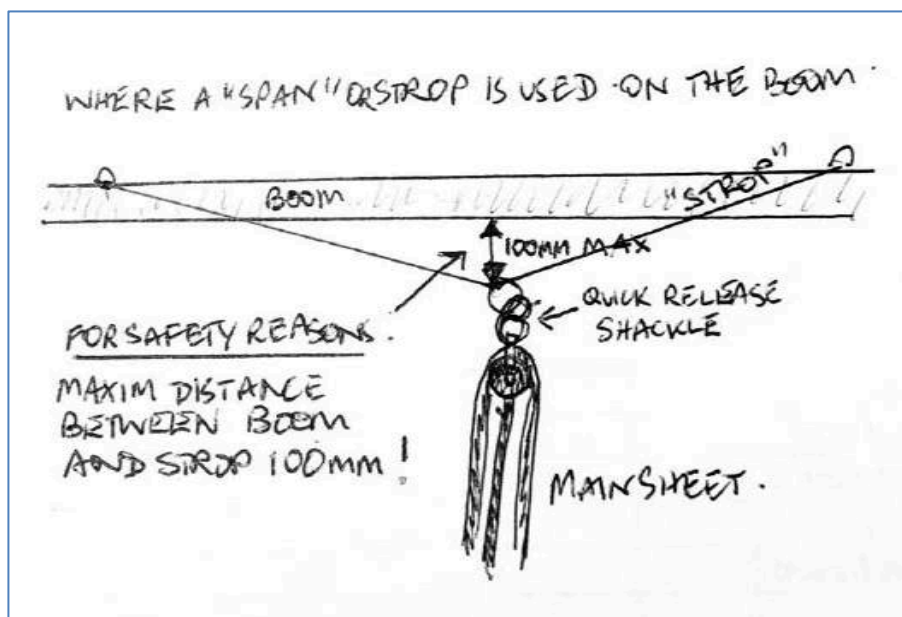 WHERE A "SPAN" OR STROP IS USED ON THE BOOM.
BOOM
"STROP"
100MM MAX
QUICK RELEASE
SHACKLE
FOR SAFETY REASONS.
MAXIM DISTANCE
BETWEEN BOOM
AND STROP 100mm!
MAINSHEET.